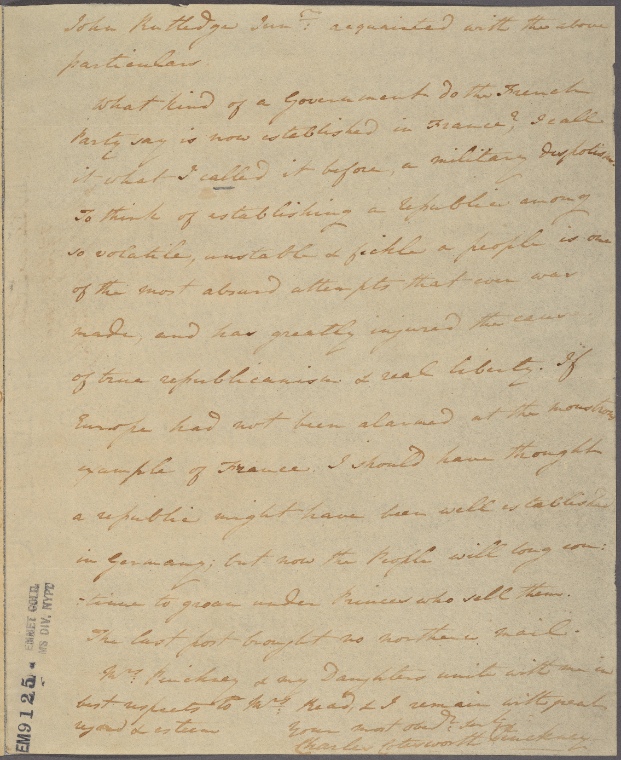 John Rutledge Junr. acquainted with the above
particulars.
What kind of a Government do the French
Party say is now established in France? I call
it what I called it before, a military despotism.
To think of establishing a republic among
so volatile, unstable & fickle a people is one
of the most absurd attempts that ever was
made, and has greatly injured the cause
of true republicanism & real liberty. If
Europe had not been alarmed at the monstrous
example of France. I should have thought
a republic might have been well established
in Germany; but now the People will long con:
:tinue to groan under Princes who sell them.
The last post brought no northern mail.
Mrs. Pinckney & my Daughters unite with me in
best respects to Mrs. Read, & I remain with great
regard & esteem your most obedt. servt.
Charles Cotesworth Pinckney
EM9125
EMMET COLL.
MS DIV. NYPL